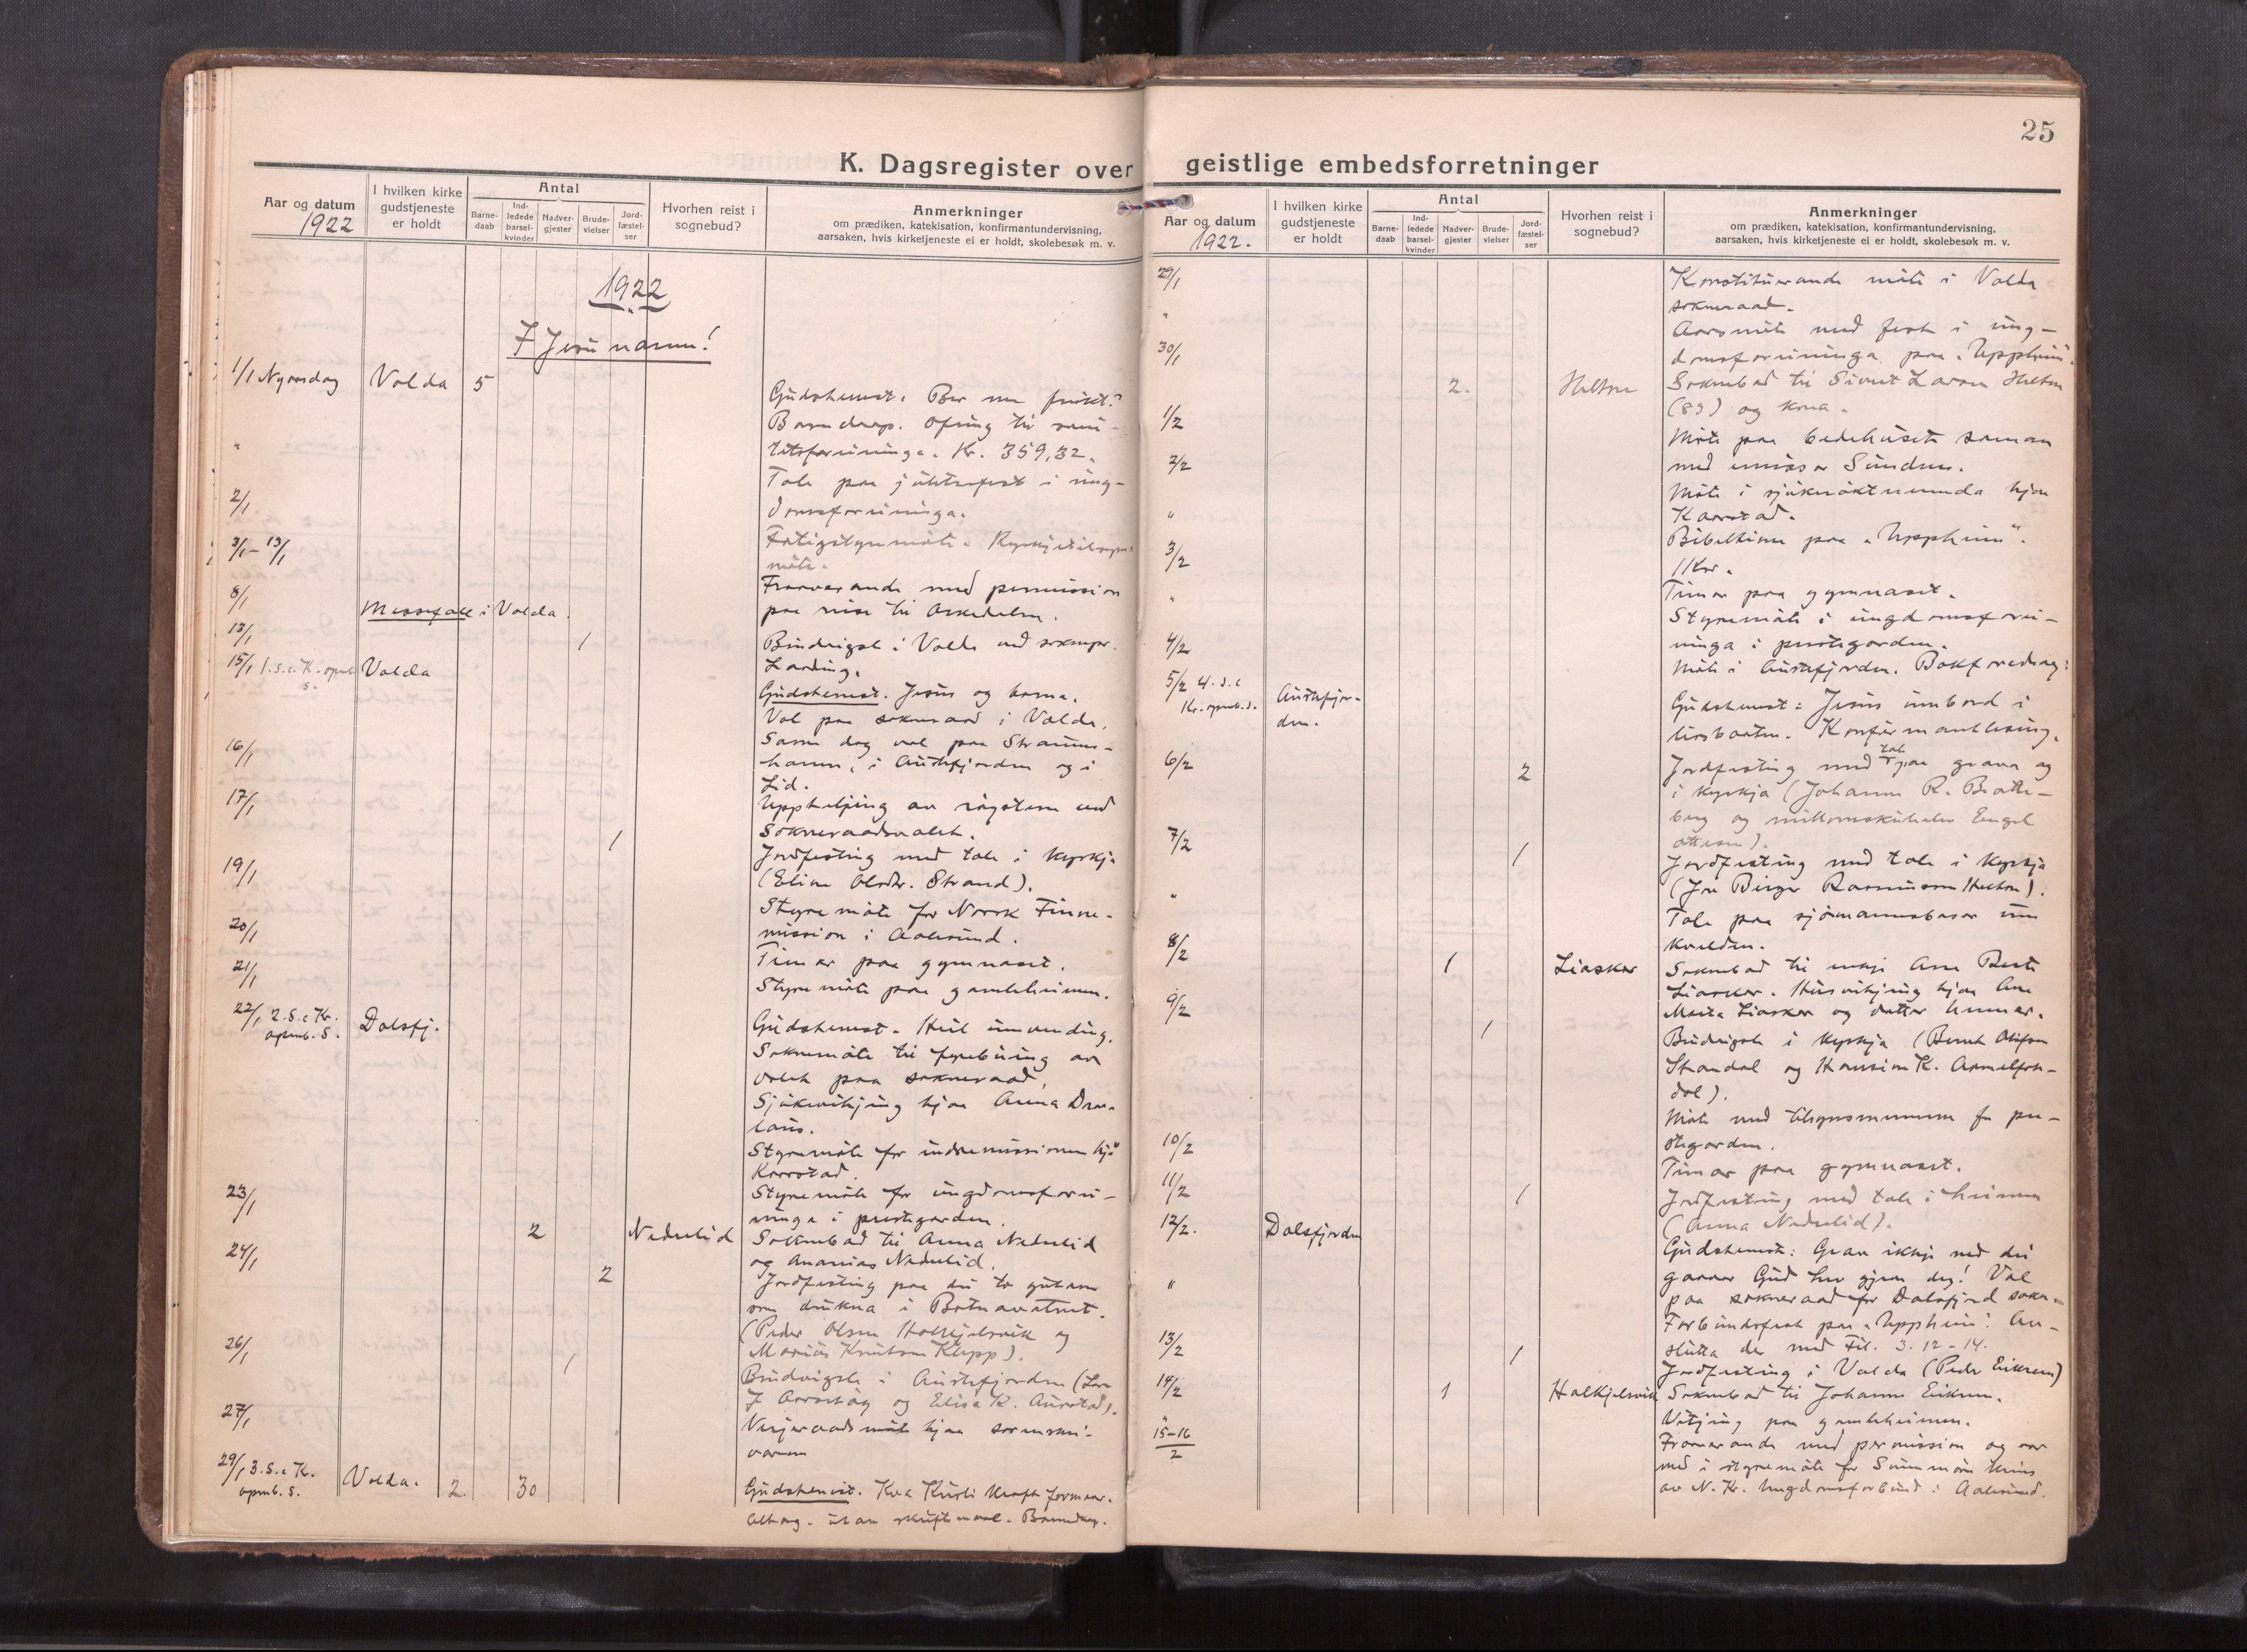 25
K. Dagsregister over geistlige embedsforretninger
Aar og datum
1922
I hvilken kirke
gudstjeneste
er holdt
Antal
Barne-
daab
Ind-
ledede
barsel-
kvinder
Nadver-
gjester
Brude-
vielser
Jord-
fæstel-
ser
Hvorhen reist i
sognebud?
Anmerkninger
om prædiken, katekisation, konfirmantundervisning,
aarsaken, hvis kirketjeneste ei er holdt, skolebesøk m. v.
1922
I Jesu namn!
1/1 Nyaarsdag Volda 5
Gudstenest.
Barnedaap. Ofring til
Kr. 359,32.
"
Tale paa juletrefest i ung-
domsforeininga.
2/1
Fatigstyremøte.
møte.
3/1 – 13/1
Fraaverande med permission
paa reise til Askedalen.
8/1
Messefall i Volda.
13/1 1
Brudvigsle i Volda ved
15/1 1. s. e. K. openb. s. Volda
Gudstenest. Jesus og borna.
Val paa sokneraad i Volda.
Same dag val paa Straums-
hamn, i Austefjorden og i
Lid.
16/1
Uppteljing av røystene ved
sokneraadsvalet.
17/1 1
Jordfesting med tale i kyrkja
(Eline Olsdtr. Strand).
19/1
Styremøte for Norsk Finne-
mission i Aalesund.
20/1
Timar paa gymnaset.
21/1
Styremøte paa gamleheimen.
22/1 2. S. e Kr.
openb. S. Dalsfj.
Gudstenest. Heil umvending.
Soknemøte til fyrebuing av
valet paa sokneraad.
Sjukevitjing hjaa Anna
Styremøte for indremissionen hjaa
Kaarstad.
Styremøte for ungdomsforei-
ninga i prestegarden.
23/1 2 Nedrelid
Soknebod til Anna Nedrelid
og Ananias Nedrelid.
24/1 2
Jordfesting paa dei to gutane
som drukna i Botnavatnet.
(Peder Olsen Halkjelsvik og
Marius Knutson Klepp).
26/1 1
Brudvigsle i Austefjorden (Lars
J. Aarset og Elisa K. Aurstad).
27/1
Verjeraadsmøte hjaa sorenskri-
varen
29/1 3. S. e K.
openb. s. Volda. 2 30
Gudstenest. Kva Kristi kraft formaar.
Altarg. utan skriftemaal. Barnedaap.
Aar og datum
1922.
I hvilken kirke
gudstjeneste
er holdt
Antal
Barne-
daab
Ind-
ledede
barsel-
kvinder
Nadver-
gjester
Brude-
vielser
Jord-
fæstel-
ser
Hvorhen reist i
sognebud?
Anmerkninger
om prædiken, katekisation, konfirmantundervisning,
aarsaken, hvis kirketjeneste ei er holdt, skolebesøk m. v.
29/1
Konstituerande møte i Volda
sokneraad.
"
Aarsmøte med fest i ung-
domsforeininga paa "Uppheim".
30/1 2. Heltne
Soknebod til Sivert Larsen Heltne
(83) og kona.
1/2
Møte paa bedehuset saman
med
2/2
Møte i sjukerøktnemnda hjaa
Kaarstad.
"
Bibeltime paa "Uppheim".
3/2
Timar paa gymnaset.
"
Styremøte i ungdomsforei-
ninga i prestegarden.
4/2
Møte i Austefjorden.
5/2 4. s. e
Kr. openb. s. Austefjor-
den.
Gudstenest: Jesus umbord i
livsbaaten. Konfirmantlesing.
6/2 2
Jordfesting med tale paa grava og
i kyrkja (Johanne R. Bratte-
berg og
7/2 1
Jordfesting med tale i kyrkja
(Jon Birger Rasmusson Heltne).
"
Tale paa sjømannsbasar um
kvelden.
8/2 1 Liasker
Soknebod til
Liasker. Husvitjing hjaa Ane
Marta Liasker og dotter hennar.
9/2 1
Brudvigsle i kyrkja (Bernt
Standal og Hansine K.
dal).
Møte med tilsynsmennene for pre-
stegarden.
10/2
Timar paa gymnaset.
11/2 1
Jordfesting med tale i heimen
(Anna Nedrelid).
12/2. Dalsfjorden
Gudstenest: Grav ikkje ned dei
gaavor Gud hev gjeve deg! Val
paa sokneraad for Dalsfjord sokn.
"
Forbundsfest paa "Uppheim". Av-
slutta der med Fil. 3. 12–14.
13/2 1
Jordfesting i Volda (Peder Eikrem)
14/2 1 Halkjelsvik
Soknebod til Johanne Eikrem.
"
Vitjing paa gamleheimen.
15–16/2
Fraaverande med permission og var
med i styremøte for Sunnmøre krins
av N. Kr. Ungdomsforbund i Aalesund.